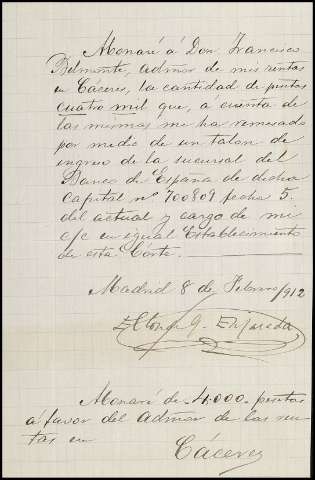 Abonaré á Don Francisco
Belmonte, admor de mis rentas
en Cáceres, la cantidad de pesetas
cuatro mil que, a cuenta de
las mismas me ha remesado
por medio de un talon de
ingreso de la sucursal del
Banco de España de dicha
Capital nº 700809 fecha 5.
del actual y cargo de mi
c/c en igual Establecimiento
de esta Córte.
Madrid 8 de Febrero/912
Abonaré de 4.000. pesetas
a favor del admor de las ren-
tas en
Cáceres